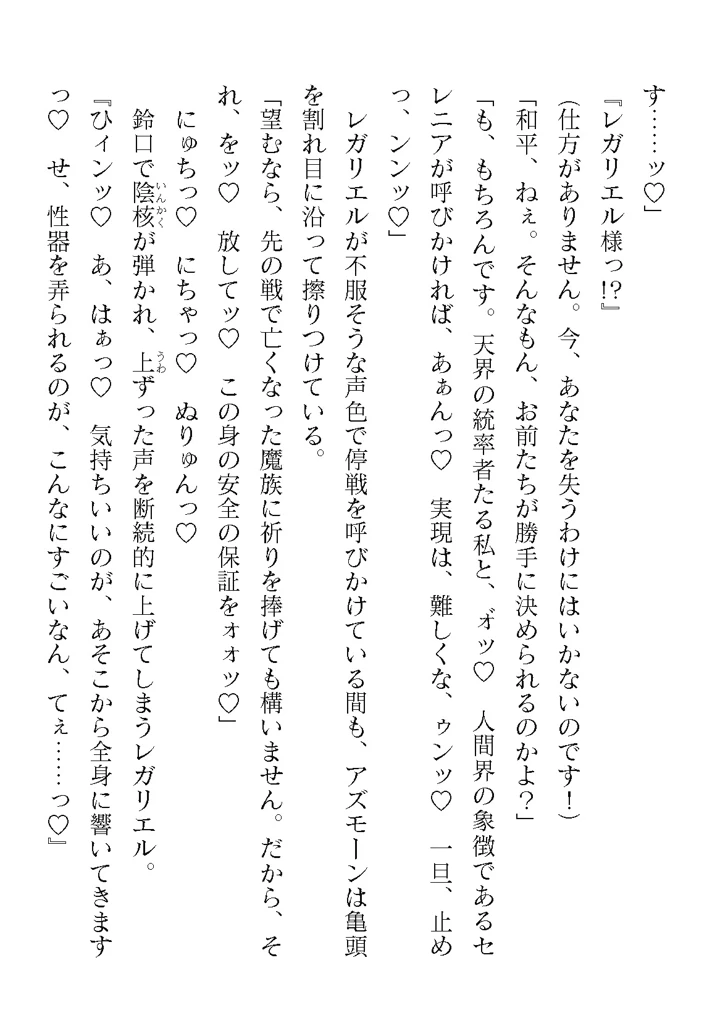 す……ッ♡」
『レガリエル様っ!?』
(仕方がありません。今、あなたを失うわけにはいかないのです！)
「和平、ねぇ。そんなもん、お前たちが勝手に決められるのかよ？」
「も、もちろんです。天界の統率者たる私と、ｫ゛ッ♡　人間界の象徴であるセ
レニアが呼びかければ、あぁんっ♡　実現は、難しくな、ゥンッ♡　一旦、止め
っ、ンンッ♡」
　レガリエルが不服そうな声色で停戦を呼びかけている間も、アズモーンは亀頭
を割れ目に沿って擦りつけている。
「望むなら、先の戦で亡くなった魔族に祈りを捧げても構いません。だから、そ
れ、をッ♡　放してッ♡　この身の安全の保証をォォッ♡」
　にゅちっ♡　にちゃっ♡　ぬりゅんっ♡
　鈴口で陰核が弾かれ、上ずった声を断続的に上げてしまうレガリエル。
『ひィンッ♡　あ、はぁっ♡　気持ちいいのが、あそこから全身に響いてきます
っ♡　せ、性器を弄られるのが、こんなにすごいなん、てぇ……っ♡』